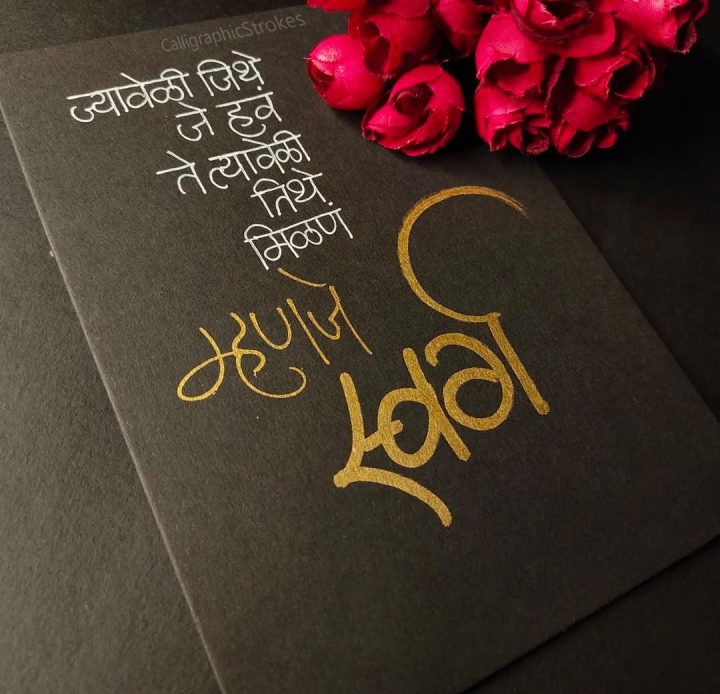 CalligraphicStrokes
ज्यावेळी जिथे
जे हवं
ते त्यावेळी
तिथे
मिळणं
म्हणजे
स्वर्ग